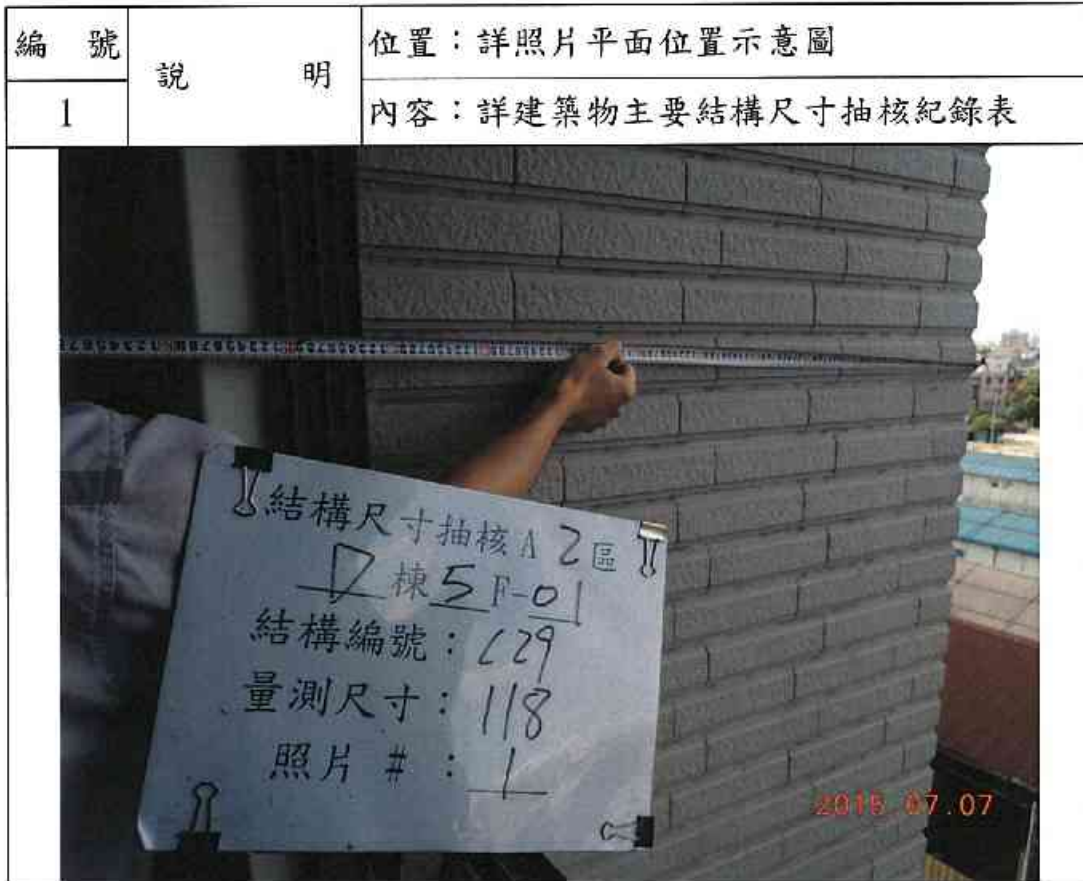 編 號
說 明
位置：詳照片平面位置示意圖
1
內容：詳建築物主要結構尺寸抽核紀錄表
結構尺寸抽核A 2區
D棟5F-01
結構編號：C29
量測尺寸：118
照片 #：1
2015 07.07